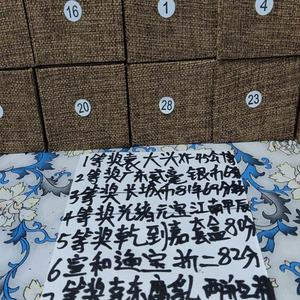 16
1
4
20
28
23
1等奖袁大头XF45分1枚
2等奖广东贰毫银币6枚
3等奖长城币81年69分1枚
4等奖光绪元宝江南甲辰
5等奖乾到嘉套盒80分
6宣和通宝折二82分